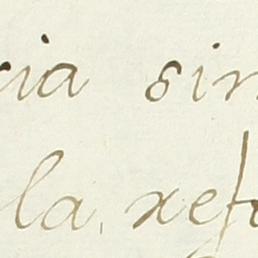 ria sin
la, refe